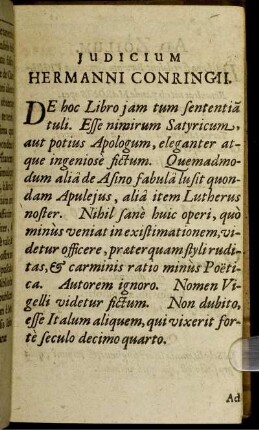 JUDICIUM
HERMANNI CONRINGII.
DE hoc Libro jam tum sententiã
tuli. Esse nimirum Satyricum,
aut potius Apologum, eleganter at-
que ingeniose fictum. Quemadmo-
dum aliâ de Asino fabulâ lusit quon-
dam Apulejus, aliâ item Lutherus
noster. Nihil sanè huic operi, quò
minus veniat in existimationem, vi-
detur officere, præterquam styli rudi-
tas, & carminis ratio minus Poëti-
ca. Autorem ignoro. Nomen Vi-
gelli videtur fictum. Non dubito,
esse Italum aliquem, qui vixerit for-
tè seculo decimo quarto.
Ad